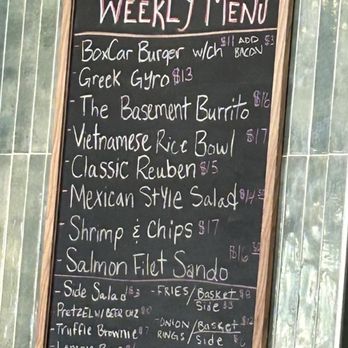 WEEKLY MENU
- BoxCar Burger w/ch $11 ADD BACON $3
- Greek Gyro $13
- The Basement Burrito $16
- Vietnamese Rice Bowl $17
- Classic Reuben $15
- Mexican Style Salad $14.50
- Shrimp & Chips $17
- Salmon Filet Sando $16.50
- Side Salad $3
- PRETZEL W/BEER CHZ
- Truffle Brownie
- FRIES/ Basket $8
Side $3
- ONION RINGS/ Basket
Side